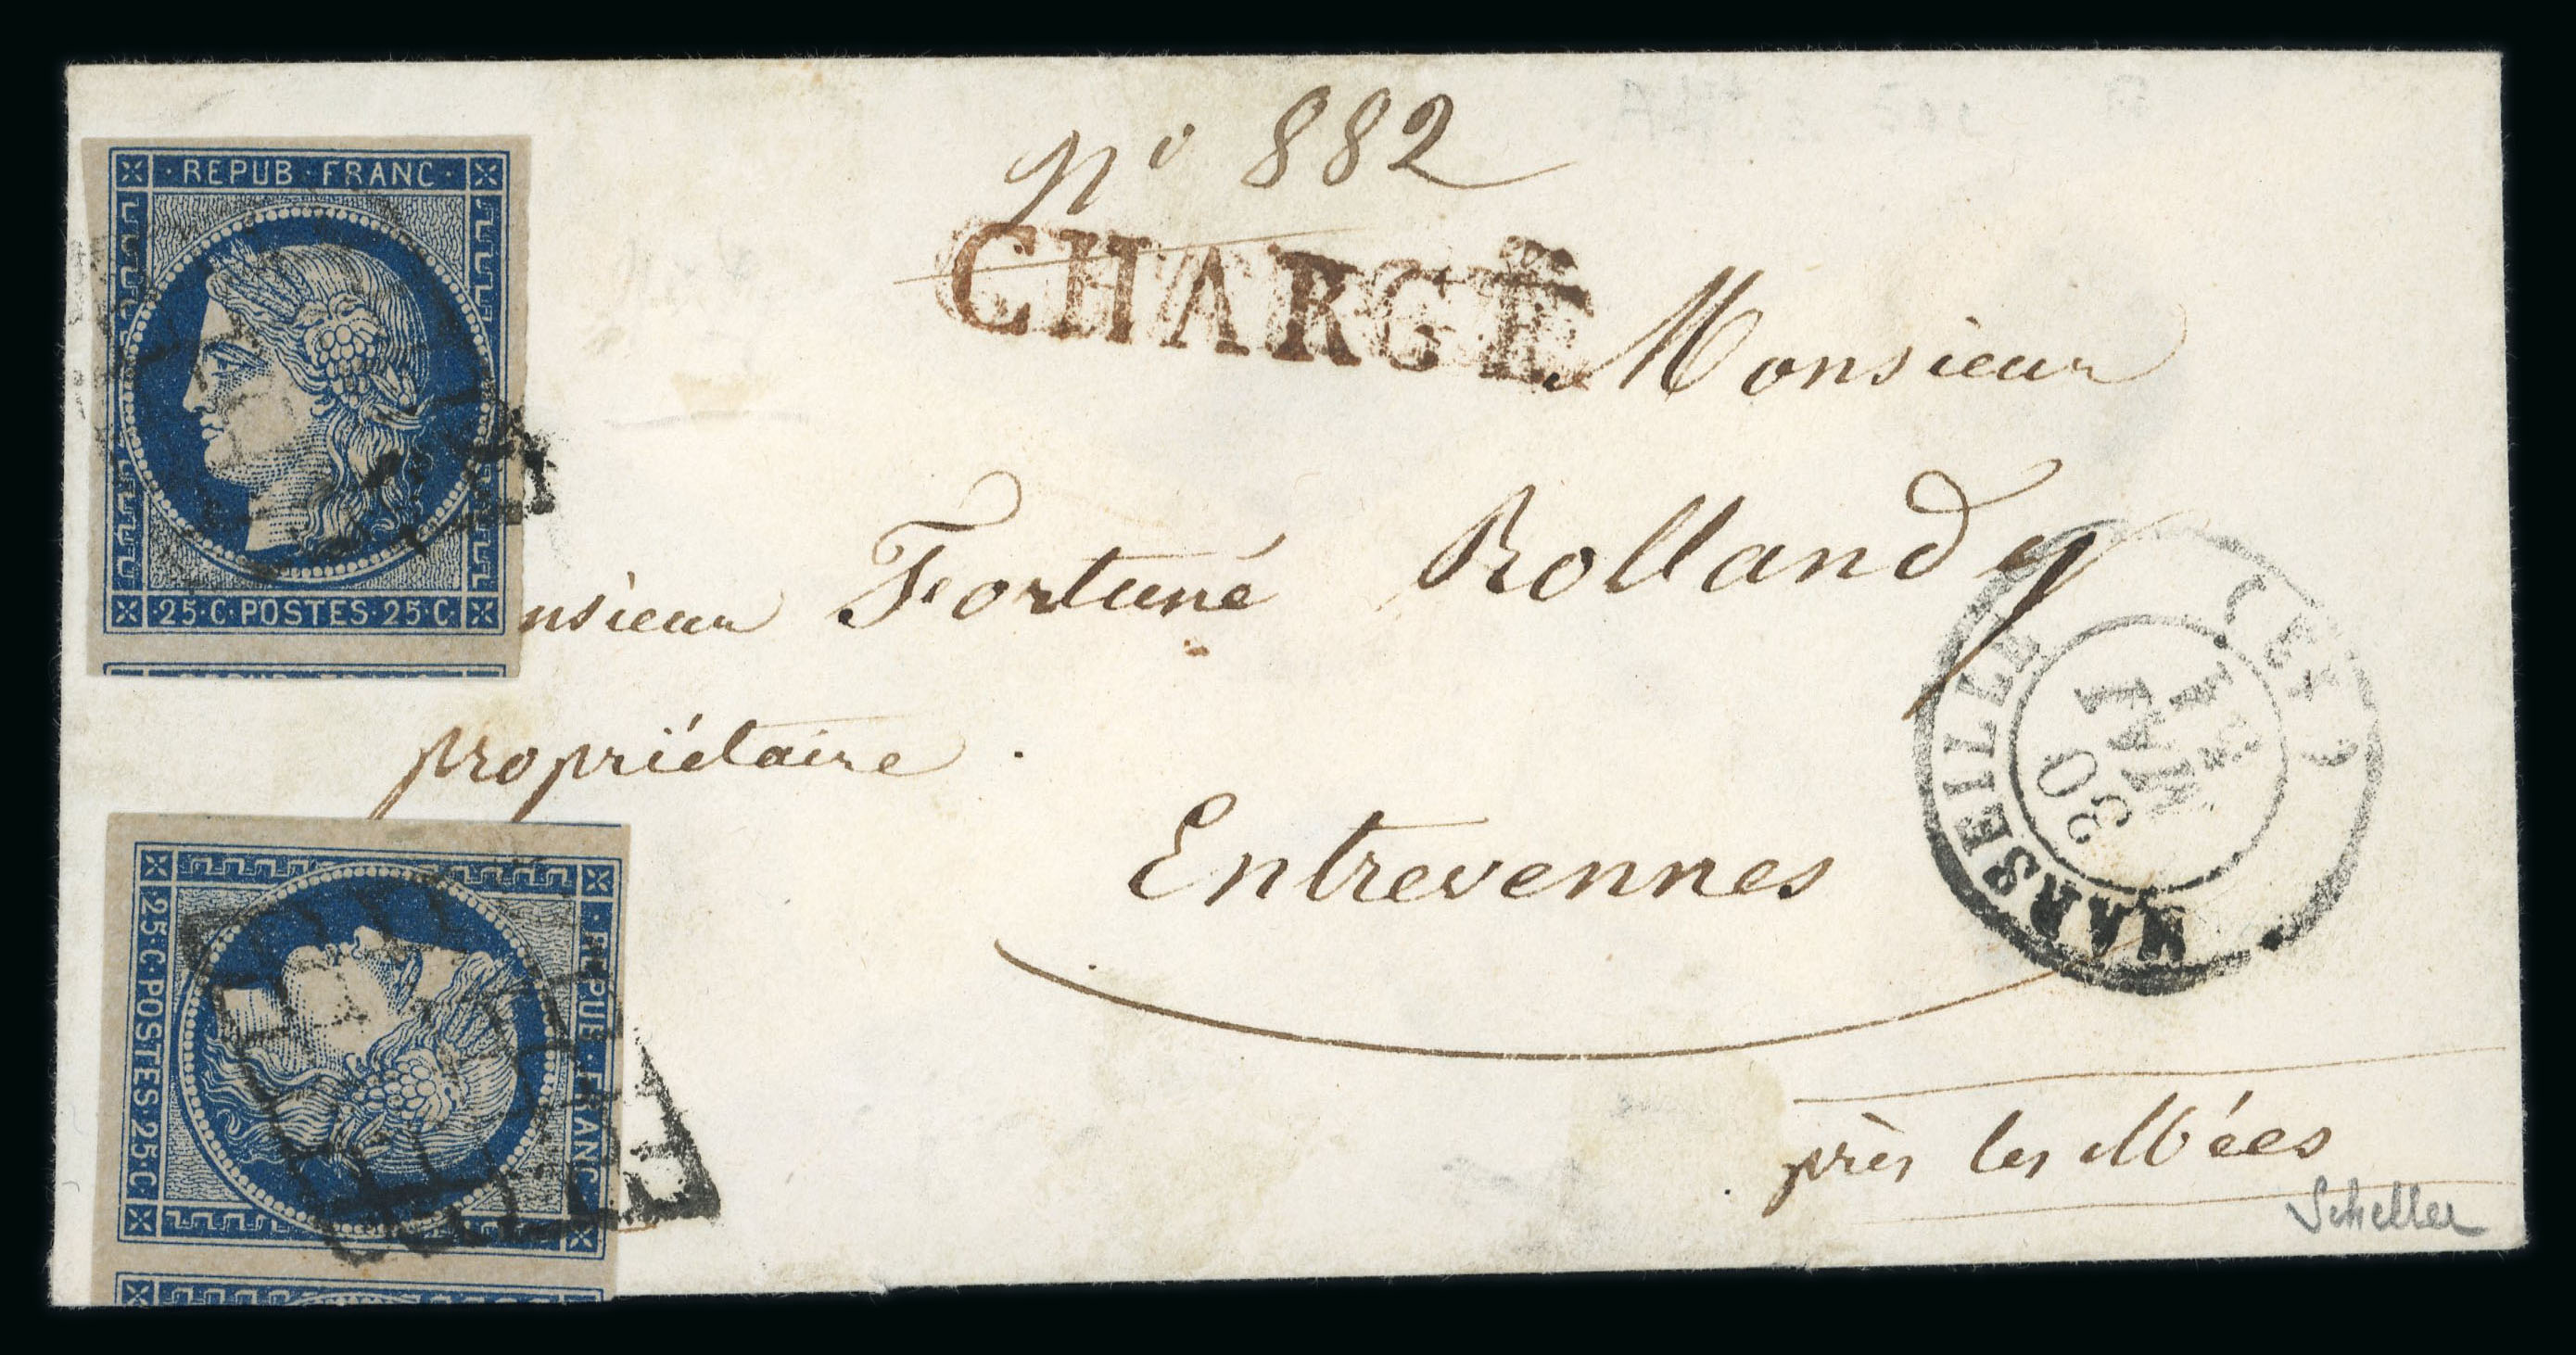 nº 882
CHARGÉ
· REPUB · FRANC ·
· 25 · C · POSTES · 25 · C ·
Monsieur
nsieur Fortuné Rollandy
propriétaire .
Entrevennes
près les Mées
MARSEILLE
30
MAI
51
· REPUB · FRANC ·
· 25 · C · POSTES · 25 · C ·
Scheller